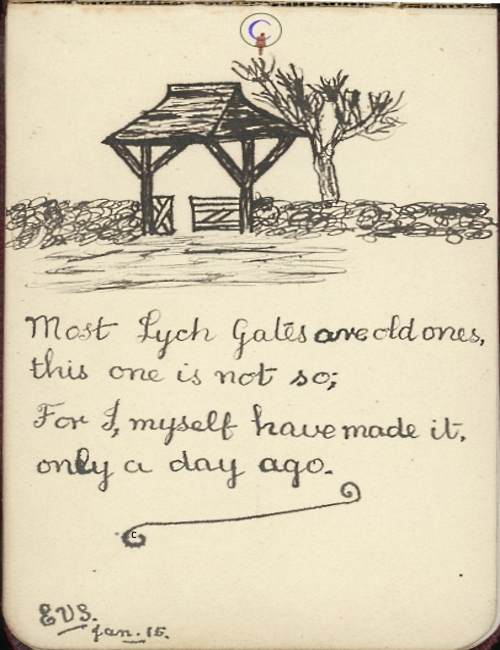 C
Most Lych Gates are old ones,
this one is not so;
For I, myself have made it,
only a day ago.
c
EVS.
Jan. 15.